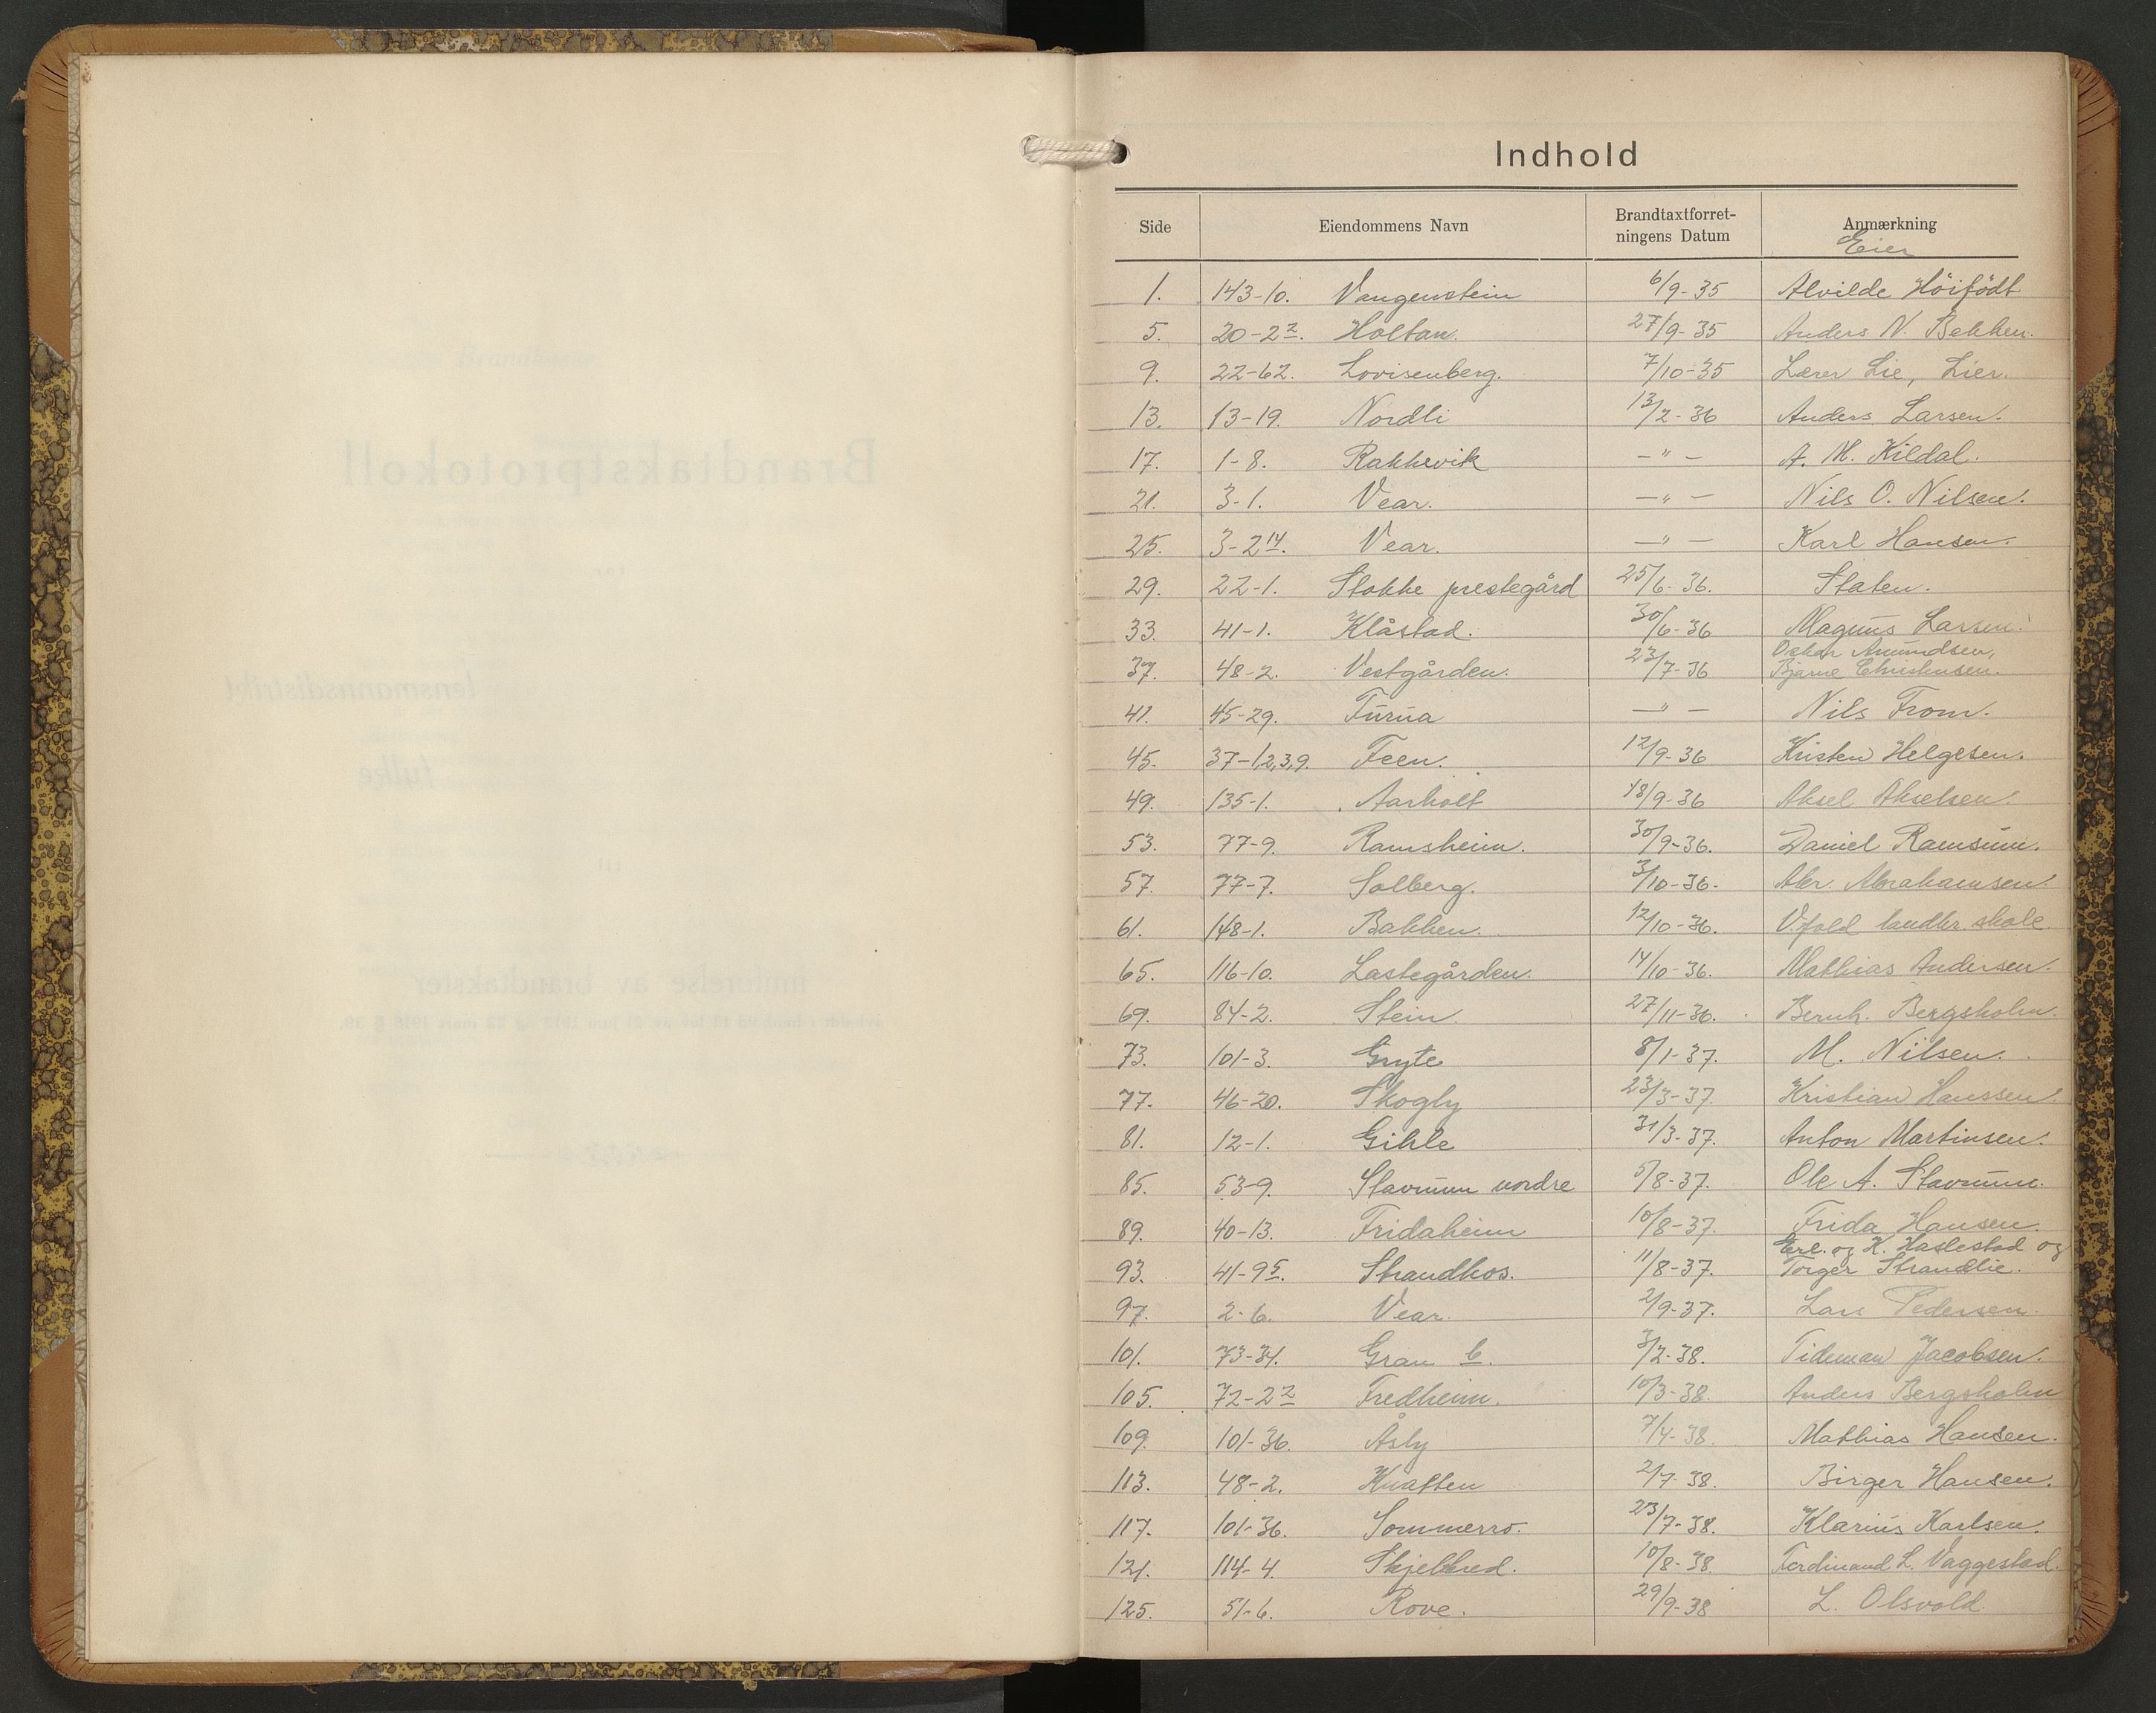 Indhold
Side Eiendommens Navn Brandtaxtforret-
ningens Datum Anmærkning
Eier
1. 143-10. Vangenstein 6/9-35 Alvilde Höifödt
5. 20-2². Holtan. 27/9-35 Anders N. Bekken.
9. 22-62. Lovisenberg. 7/10-35 Lærer Lie, Lier.
13. 13-19. Nordli 13/2-36 Anders Larsen.
17. 1-8. Rakkevik -"- A. M. Kildal.
21. 3-1. Vear. -"- Nils O. Nilsen.
25. 3-2¹⁴. Vear. -"- Karl Hansen.
29. 22-1. Stokke prestegård 25/6-36. Staten.
33. 41-1. Klåstad. 30/6-36 Magnus Larsen.
37. 48-2. Vestgården. 23/7-36 Oskar Amundsen,
Bjarne Christensen.
41. 45-29. Furua -"- Nils From.
45. 37-1,2,3,9. Feen. 12/9-36 Kristen Helgesen.
49. 135-1. Aarholt 18/9-36 Aksel Akselsen.
53. 77-9. Ramsheim. 30/9-36. Daniel Ramsum.
57. 77-7. Solberg. 3/10-36. Abr. Abrahamsen.
61. 148-1. Bakken. 12/10-36. V.fold landbr. skole
65. 116-10. Lastegården. 14/10-36. Mathias Andersen.
69. 84-2. Stein. 27/11-36. Bernh. Bergsholm.
73. 101-3. Gryte 8/1-37. M. Nilsen.
77. 46-20. Skogly 23/3-37. Kristian Hanssen.
81. 12-1. Gihle 31/3-37. Anton Martinsen.
85. 53-9. Stavnum nordre 5/8-37. Ole A. Stavnum.
89. 40-13. Fridaheim 10/8-37. Frida Hansen.
93. 41-9⁵. Strandkos. 11/8-37. Erl. og K. Haslestad og
Torger Strandlie.
97. 2-6. Vear. 2/9-37. Lars Pedersen.
101. 73-34. Gran b. 3/2-38. Tideman Jacobsen.
105. 72-2² Fredheim. 10/3-38. Anders Bergsholm
109. 101-36. Åsly 7/4-38. Mathias Hansen.
113. 48-2. Knatten 2/7-38. Birger Hansen.
117. 101-36. Sommerro. 23/7-38. Klarius Karlsen.
121. 114-4. Skjelbred. 10/8-38. Ferdinand L. Vaggestad.
125. 51-6. Rove. 29/9-38 L. Olsvold